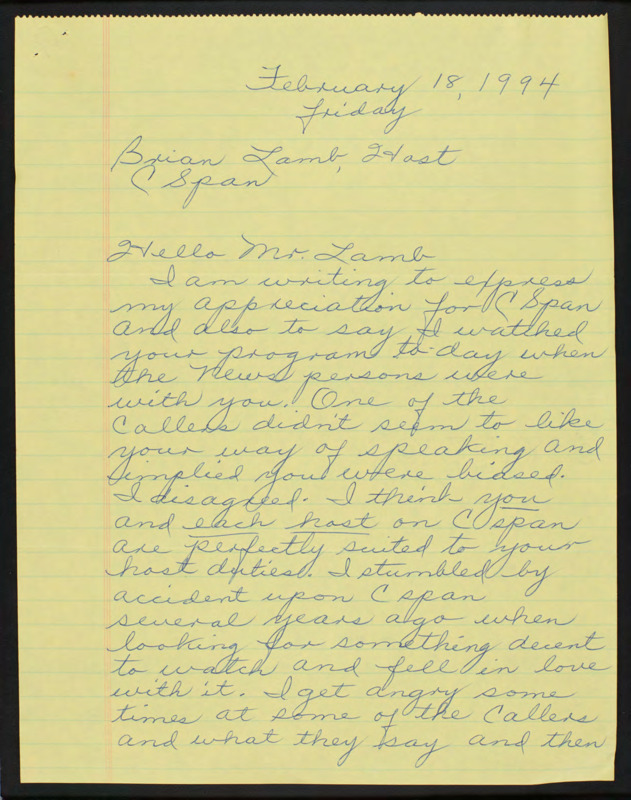 February 18, 1994
Friday
Brian Lamb, Host
C Span
Hello Mr. Lamb
I am writing to express
my appreciation for C Span
and also to say I watched
your program to-day when
the News persons were
with you. One of the
Callers didn't seem to like
your way of speaking and
implied you were biased.
I disagreed. I think you
and each host on C span
are perfectly suited to your
host duties. I stumbled by
accident upon C span
several years ago when
looking for something decent
to watch and fell in love
with it. I get angry some
times at some of the Callers
and what they say and then